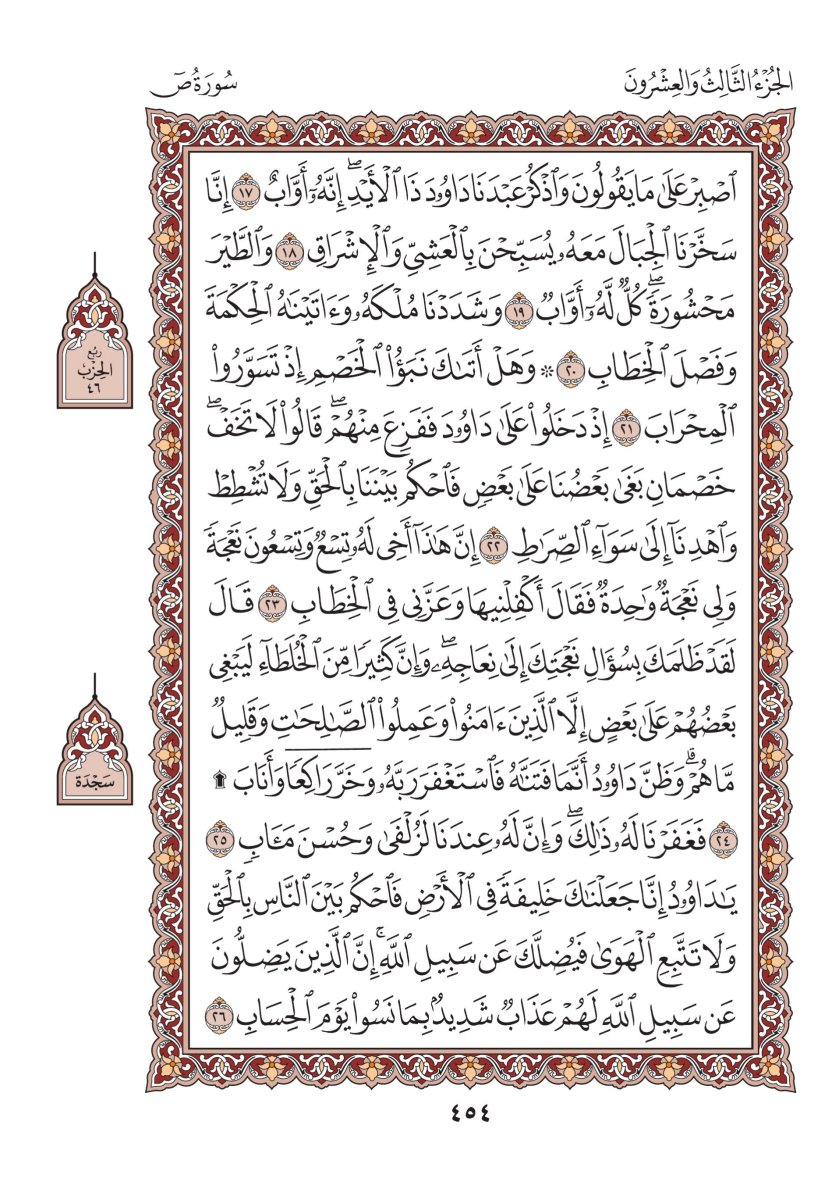 الجُزْءُ الثَّالِثُ وَالعِشْرُونَ
سُورَةُ صٓ
ٱصْبِرْ عَلَىٰ مَا يَقُولُونَ وَٱذْكُرْ عَبْدَنَا دَاوُۥدَ ذَا ٱلْأَيْدِۖ إِنَّهُۥٓ أَوَّابٌ ١٧ إِنَّا
سَخَّرْنَا ٱلْجِبَالَ مَعَهُۥ يُسَبِّحْنَ بِٱلْعَشِىِّ وَٱلْإِشْرَاقِ ١٨ وَٱلطَّيْرَ
مَحْشُورَةًۖ كُلٌّ لَّهُۥٓ أَوَّابٌ ١٩ وَشَدَدْنَا مُلْكَهُۥ وَءَاتَيْنَٰهُ ٱلْحِكْمَةَ
وَفَصْلَ ٱلْخِطَابِ ٢٠ ۞ وَهَلْ أَتَىٰكَ نَبَؤُا۟ ٱلْخَصْمِ إِذْ تَسَوَّرُوا۟
ٱلْمِحْرَابَ ٢١ إِذْ دَخَلُوا۟ عَلَىٰ دَاوُۥدَ فَفَزِعَ مِنْهُمْۖ قَالُوا۟ لَا تَخَفْۖ
خَصْمَانِ بَغَىٰ بَعْضُنَا عَلَىٰ بَعْضٍ فَٱحْكُم بَيْنَنَا بِٱلْحَقِّ وَلَا تُشْطِطْ
وَٱهْدِنَآ إِلَىٰ سَوَآءِ ٱلصِّرَٰطِ ٢٢ إِنَّ هَٰذَآ أَخِى لَهُۥ تِسْعٌ وَتِسْعُونَ نَعْجَةً
وَلِىَ نَعْجَةٌ وَٰحِدَةٌ فَقَالَ أَكْفِلْنِيهَا وَعَزَّنِى فِى ٱلْخِطَابِ ٢٣ قَالَ
لَقَدْ ظَلَمَكَ بِسُؤَالِ نَعْجَتِكَ إِلَىٰ نِعَاجِهِۦۖ وَإِنَّ كَثِيرًا مِّنَ ٱلْخُلَطَآءِ لَيَبْغِى
بَعْضُهُمْ عَلَىٰ بَعْضٍ إِلَّا ٱلَّذِينَ ءَامَنُوا۟ وَعَمِلُوا۟ ٱلصَّٰلِحَٰتِ وَقَلِيلٌ
مَّا هُمْۗ وَظَنَّ دَاوُۥدُ أَنَّمَا فَتَنَّٰهُ فَٱسْتَغْفَرَ رَبَّهُۥ وَخَرَّ رَاكِعًا وَأَنَابَ ۩
٢٤ فَغَفَرْنَا لَهُۥ ذَٰلِكَۖ وَإِنَّ لَهُۥ عِندَنَا لَزُلْفَىٰ وَحُسْنَ مَـَٔابٍ ٢٥
يَٰدَاوُۥدُ إِنَّا جَعَلْنَٰكَ خَلِيفَةً فِى ٱلْأَرْضِ فَٱحْكُم بَيْنَ ٱلنَّاسِ بِٱلْحَقِّ
وَلَا تَتَّبِعِ ٱلْهَوَىٰ فَيُضِلَّكَ عَن سَبِيلِ ٱللَّهِۚ إِنَّ ٱلَّذِينَ يَضِلُّونَ
عَن سَبِيلِ ٱللَّهِ لَهُمْ عَذَابٌ شَدِيدٌۢ بِمَا نَسُوا۟ يَوْمَ ٱلْحِسَابِ ٢٦
رُبْع
الحِزْب
٤٦
سَجْدَة
٤٥٤